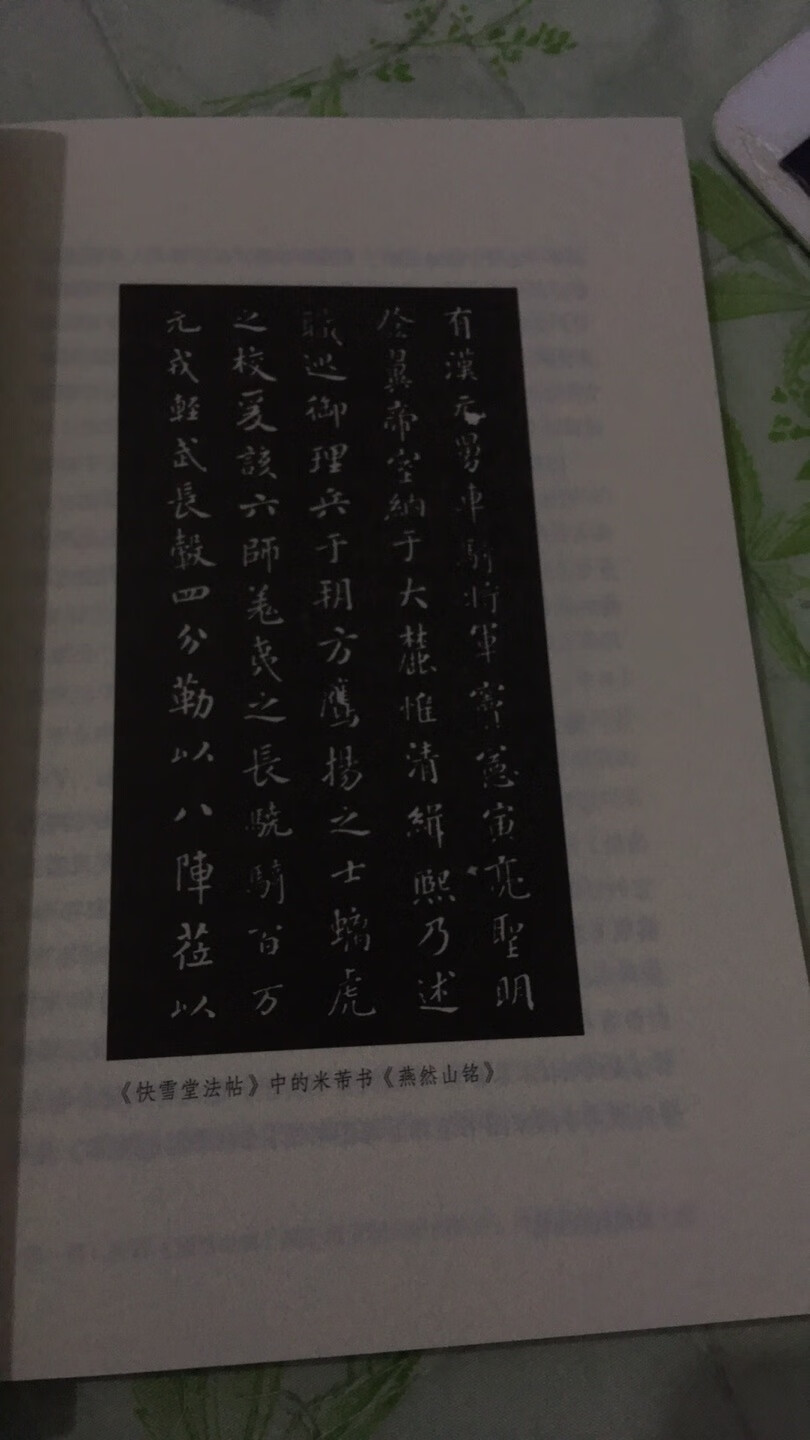 有漢元舅車騎將軍竇憲寅亮聖明
登翼帝室納于大麓惟清緝熙乃述
職巡御理兵于朔方鷹揚之士螭虎
之校爰該六師羌夷之長驍騎百万
元戎輕武長轂四分勒以八陣莅以
《快雪堂法帖》中的米芾书《燕然山铭》